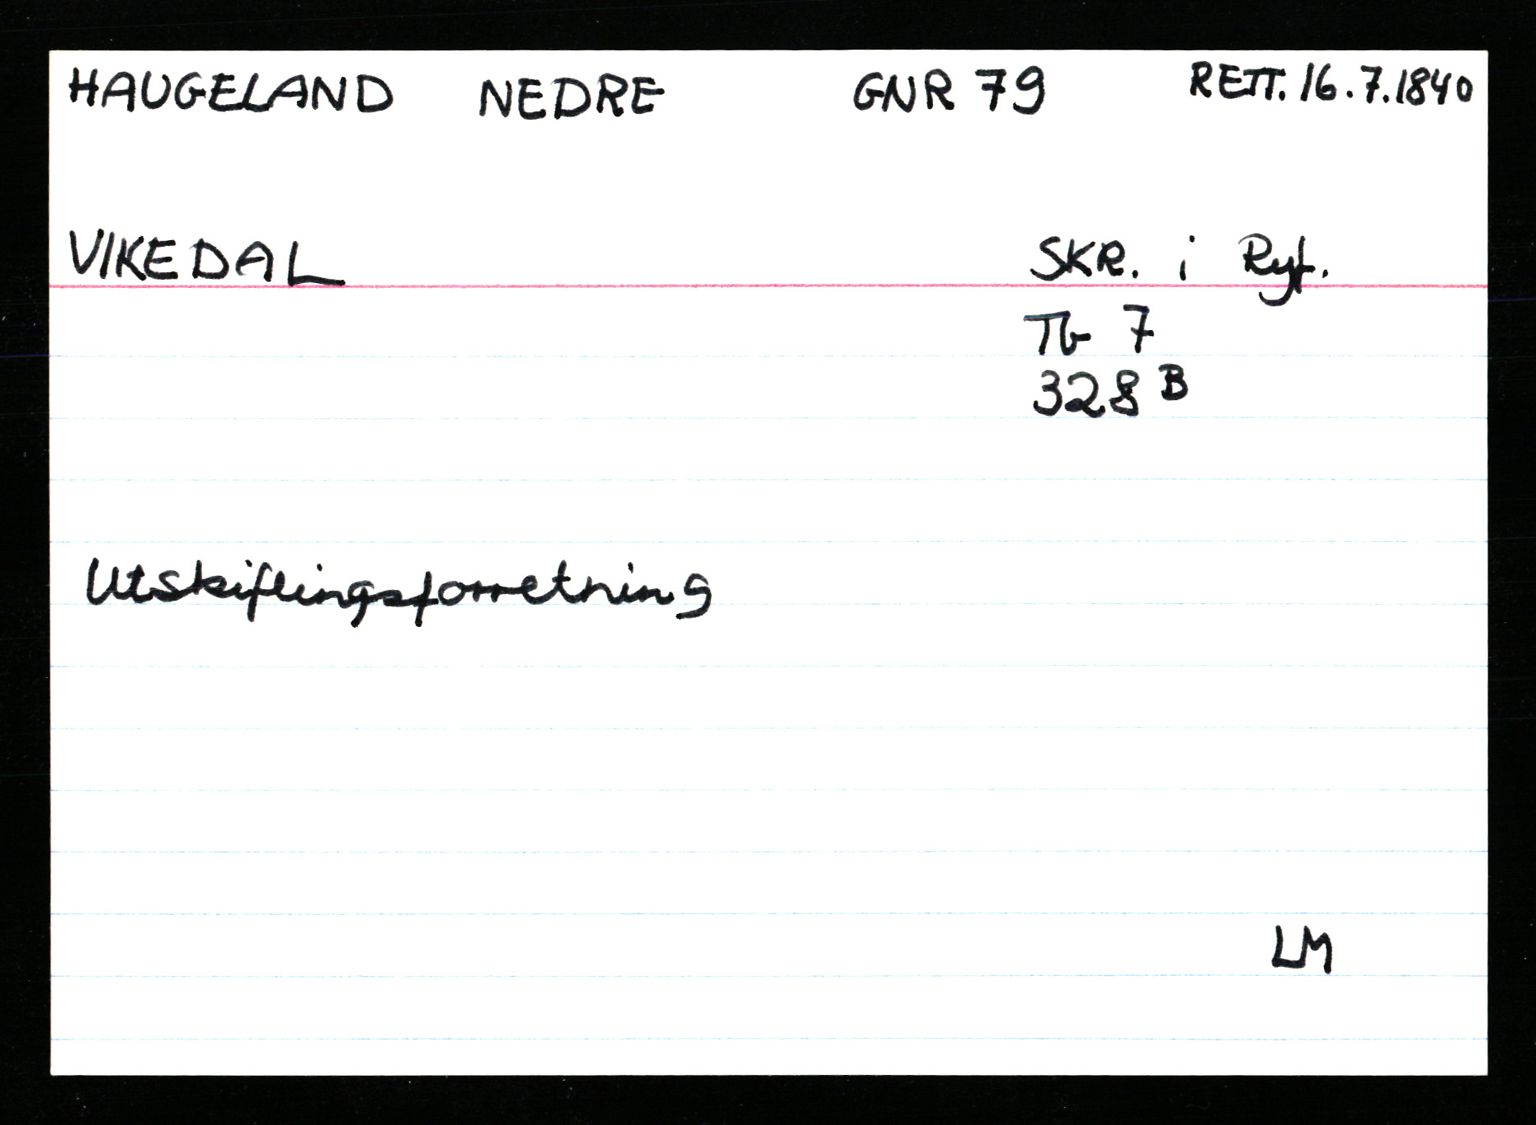 HAUGELAND NEDRE GNR 79 RETT. 16.7.1840
VIKEDAL SKR. i Ryf.
Tb 7
328 B
Utskiftingsforretning
LM